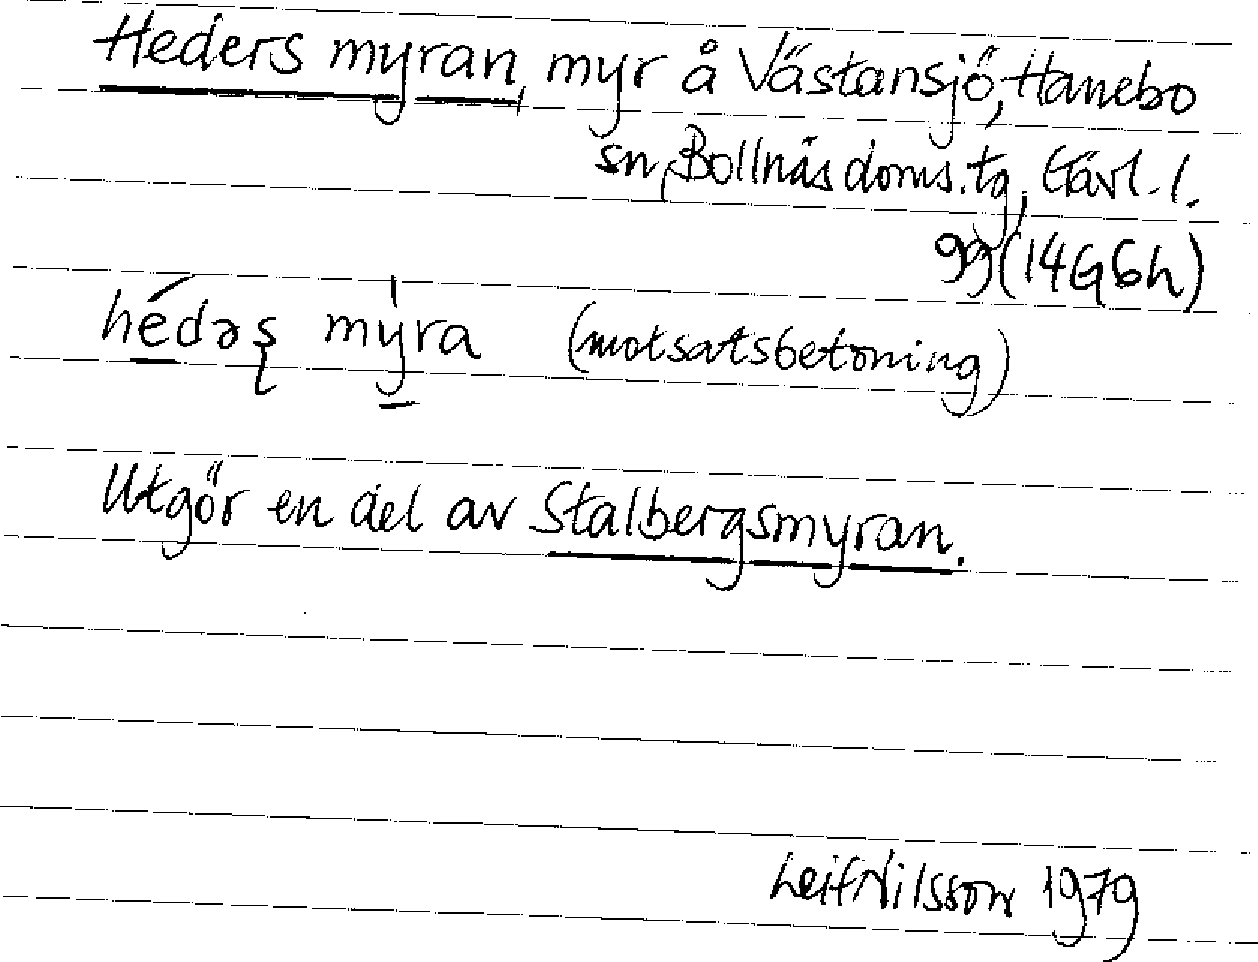 Heders myran, myr å Västansjö, Hanebo
sn, Bollnäs doms.tg, Gävl. l.
99 (14G6h)
hédəʂ mýra (motsatsbetoning)
Utgör en del av Stalbergsmyran.
Leif Nilsson 1979